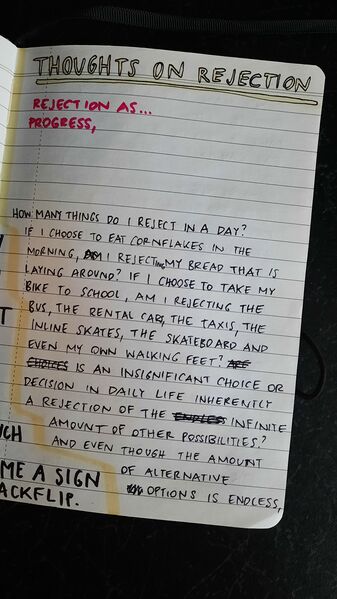 THOUGHTS ON REJECTION
REJECTION AS...
PROGRESS,
HOW MANY THINGS DO I REJECT IN A DAY?
IF I CHOOSE TO EAT CORNFLAKES IN THE
MORNING, AM I REJECTING MY BREAD THAT IS
LAYING AROUND? IF I CHOOSE TO TAKE MY
BIKE TO SCHOOL, AM I REJECTING THE
BUS, THE RENTAL CAR, THE TAXIS, THE
INLINE SKATES, THE SKATEBOARD AND
EVEN MY OWN WALKING FEET? ARE
CHOICES IS AN INSIGNIFICANT CHOICE OR
DECISION IN DAILY LIFE INHERENTLY
A REJECTION OF THE ENDLESS INFINITE
AMOUNT OF OTHER POSSIBILITIES?
AND EVEN THOUGH THE AMOUNT
OF ALTERNATIVE
OPTIONS IS ENDLESS,
ME A SIGN
ACKFLIP.